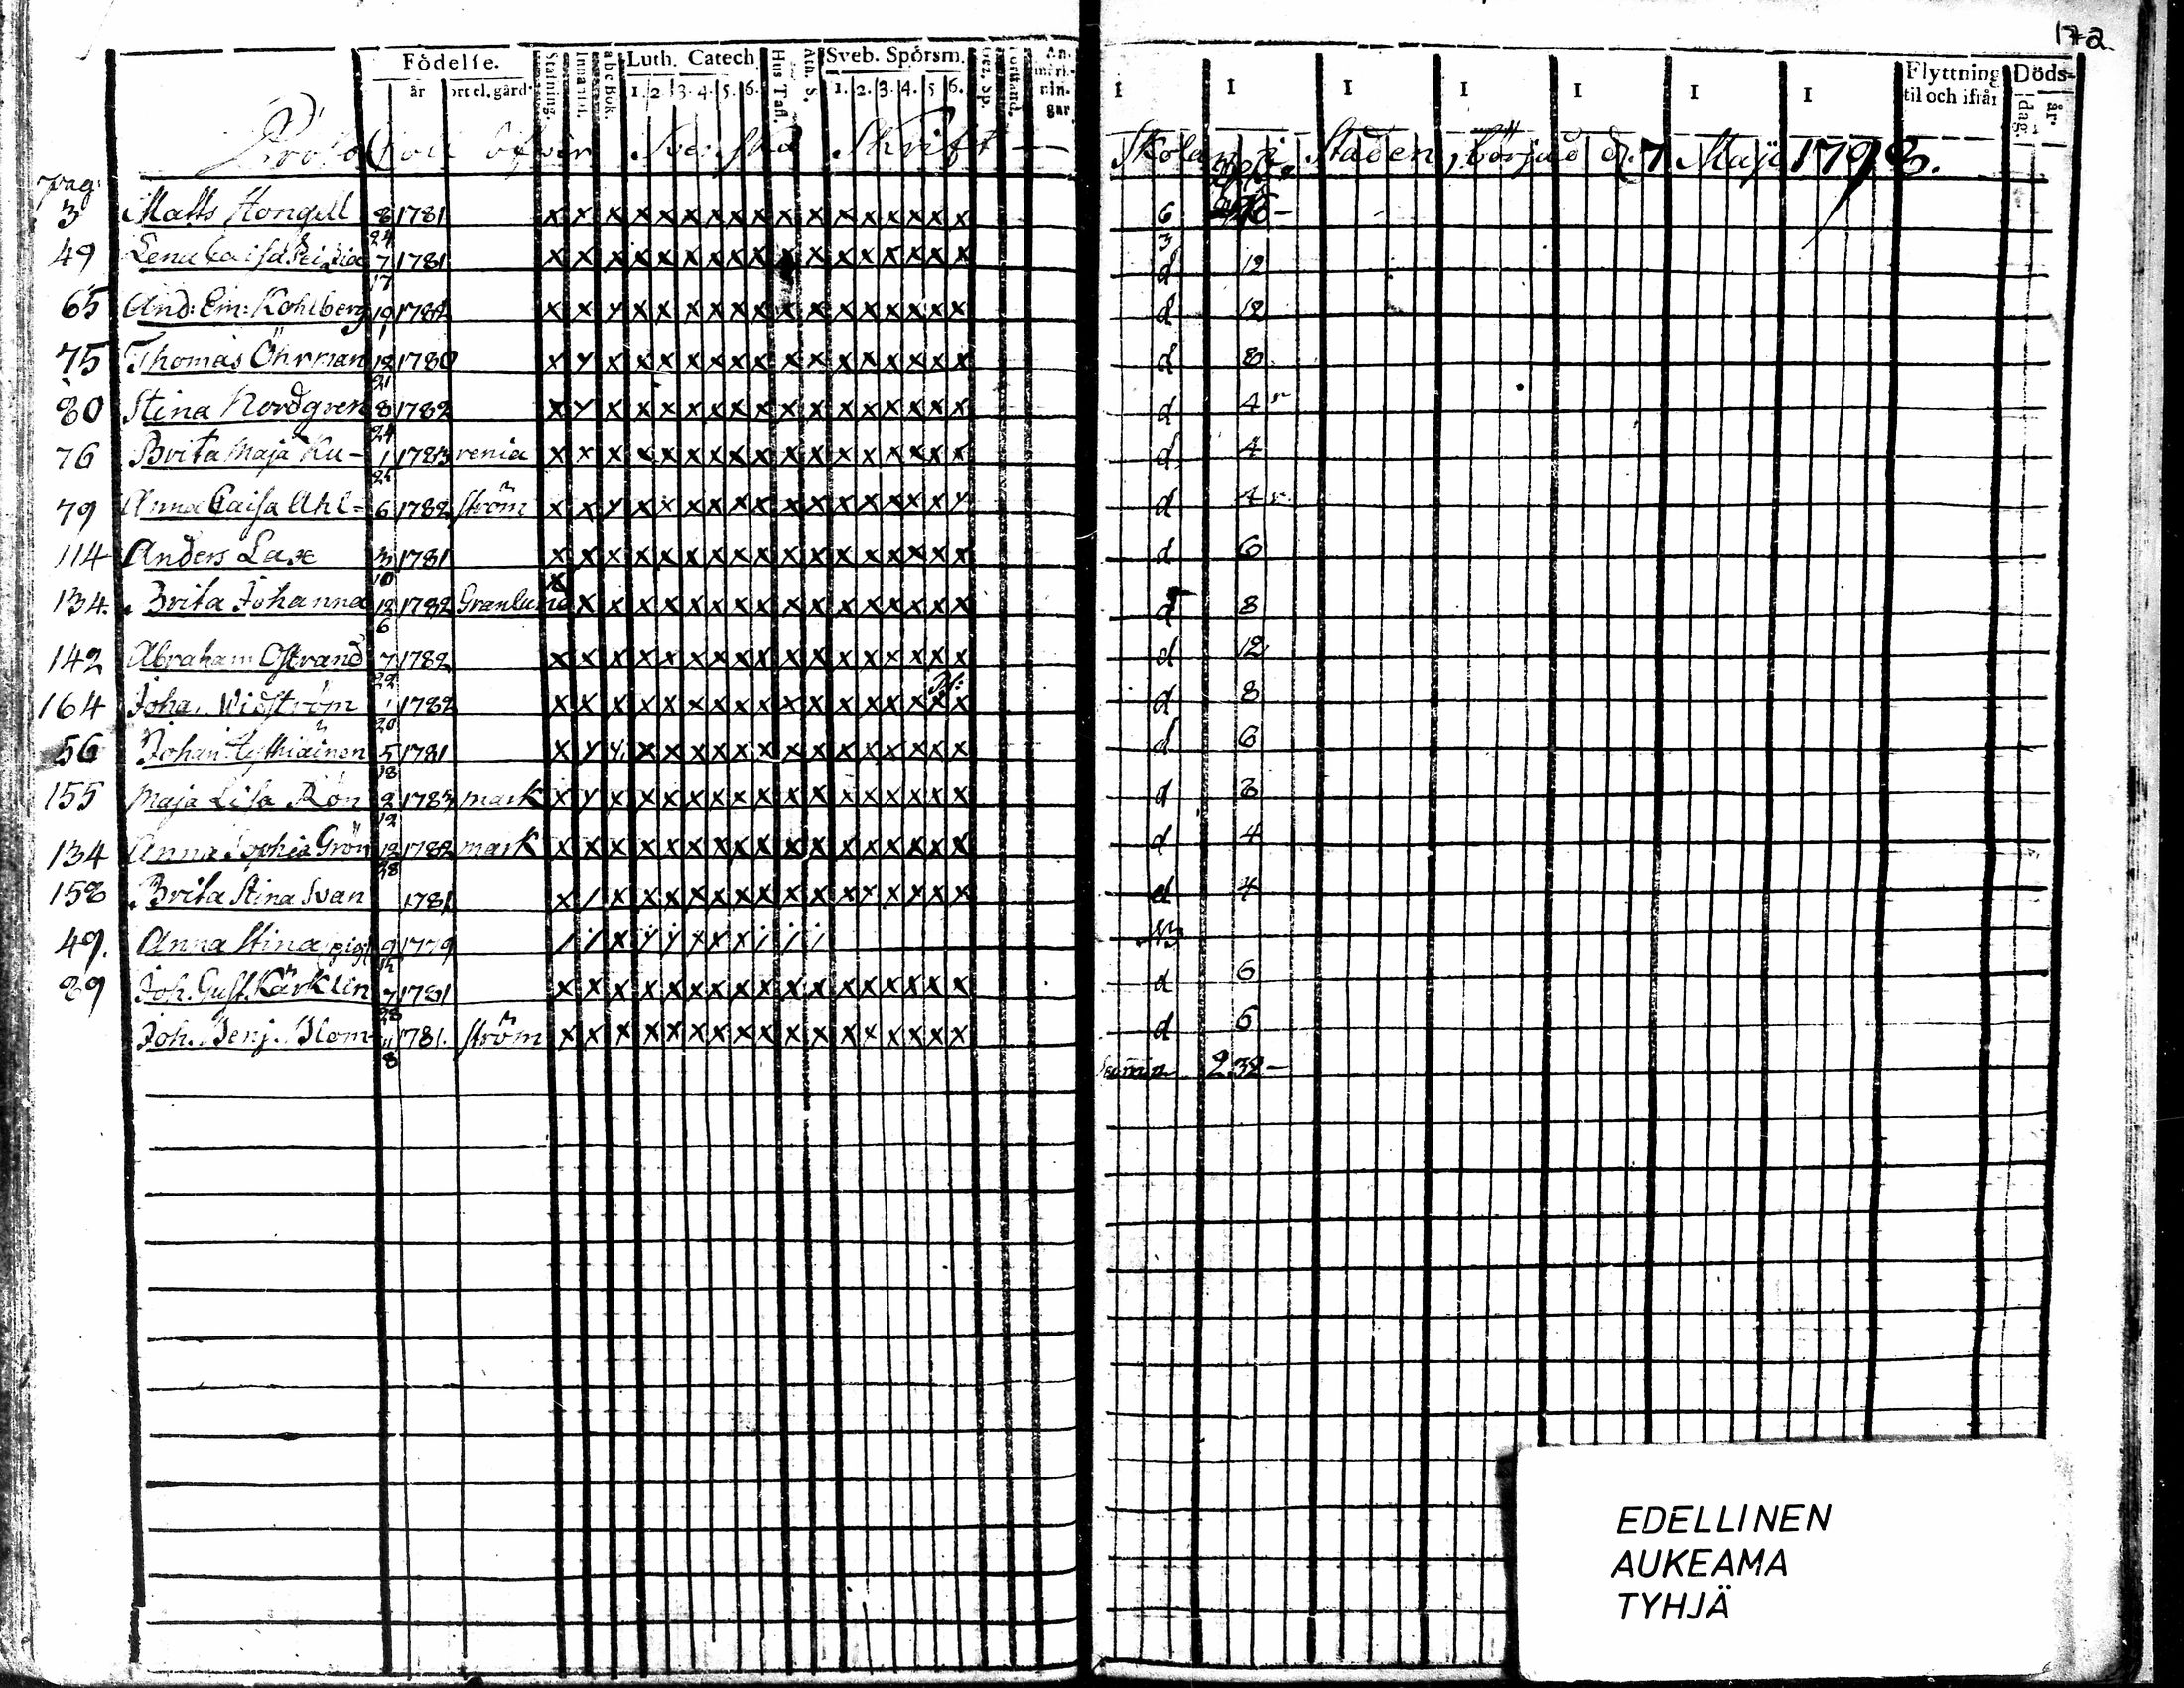 172
Födelse. Stafning. Innanl. abcBok. Luth. Catech. Hus Tafl. Ath. S. Sveb. Spörsm. Gez. Sp. Förstånd. An-märk-nin-gar I I I I I I I Flyttning til och ifrån Döds-
år ort el. gård. 1. 2. 3. 4. 5. 6. 1. 2. 3. 4. 5. 6. dag. år.
öfver Svenska Skrift — Skolan i Staden, börjad d. 7 Maji 1798.
pag:
3 Matts Hongell 8 1781 x x x x x x x x x x x x x x x x x 6
24 3
49 Lena Caisa 7 1781 x x x x x x x x x x x x x x x x x d 12
17
65 And: Em: Kohlberg 19 x x x x x x x x x x x x x x x x x d 12
1
75 Thomas Öhrman 12 1780 x x x x x x x x x x x x x x x x x d 8
21
80 Stina Nordgren 8 1782 x x x x x x x x x x x x x x x x x d 4
24
76 Brita Maja Ku- 1 1783 renia x x x x x x x x x x x x x x x x x d 4
25
79 Anna Caisa Ahl- 6 1782 ström x x x x x x x x x x x x x x x x x d 4
114 Anders Lax 3 1781 x x x x x x x x x x x x x x x x x d 6
10
134. Brita Johanna 12 1782 Granlund x x x x x x x x x x x x x x x x x d 8
6
142 Abraham Östrand 7 1782 x x x x x x x x x x x x x x x x x d 12
22
164 Joha. Widström 1 1782 x x x x x x x x x x x x x x x x x d 8
20
56 Johan 5 1781 x x x x x x x x x x x x x x x x x d 6
18
155 Maja Lisa Rön 2 1783 mark x x x x x x x x x x x x x x x x x d 8
12
134 Anna Sophia Grön 12 1782 mark x x x x x x x x x x x x x x x x x d 4
28
158 Brita Stina Svan 1781 x / x x x x x x x x x x x x x x x d 4
49. Anna Stina pig 9 1779
89 Joh. Gust. Kärklin 7 1781 x x x x x x x x x x x x x x x x x d 6
28
Joh. Benj. Blom- 11 1781. ström x x x x x x x x x x x x x x x x x d 6
8 Summa 232-
EDELLINEN
AUKEAMA
TYHJÄ